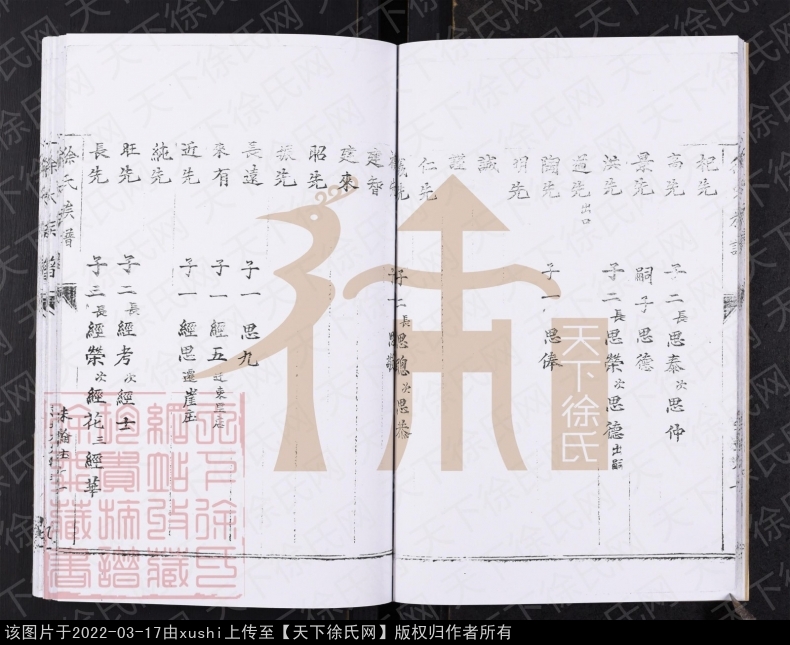 杞先
高先 子二長思泰次思仲
景先 嗣子思德
洪先 子二長思榮次思德出嗣
道先出口
陶先 子一思俸
明先
誠
謹
仁先
子二長思聰次思泰
建智
建來
昭先
振先
長遠 子一思九
來有 子一經五
近先 子一經思遷崖庄
純先
旺先 子二長經考次經士
長先 子三長經榮次經花三經華
徐氏族譜
天下徐氏
天下徐氏网
该图片于2022-03-17由xushi上传至【天下徐氏网】版权归作者所有